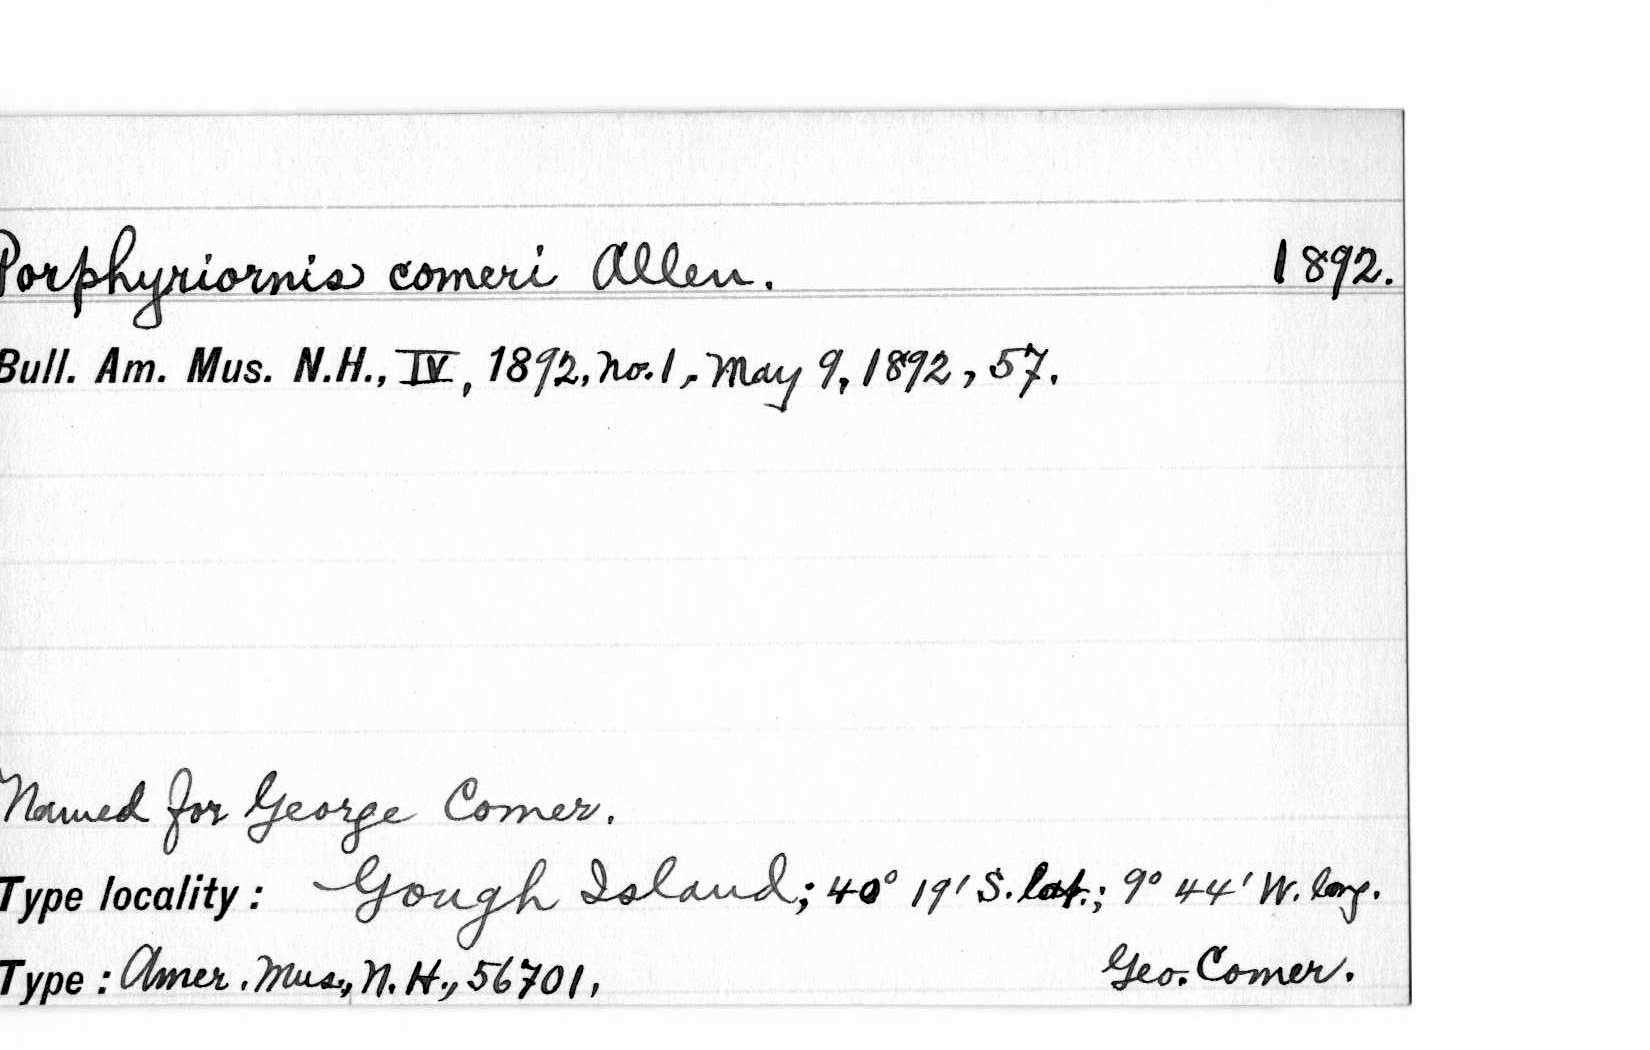 Porphyriornis comeri Allen. 1892.
Bull. Am. Mus. N.H., IV, 1892, no. 1, May 9, 1892, 57.
Named for George Comer.
Type locality: Gough Island; 40° 19' S. lat.; 9° 44' W. long.
Type: Amer. Mus., N. H., 56701, Geo. Comer.